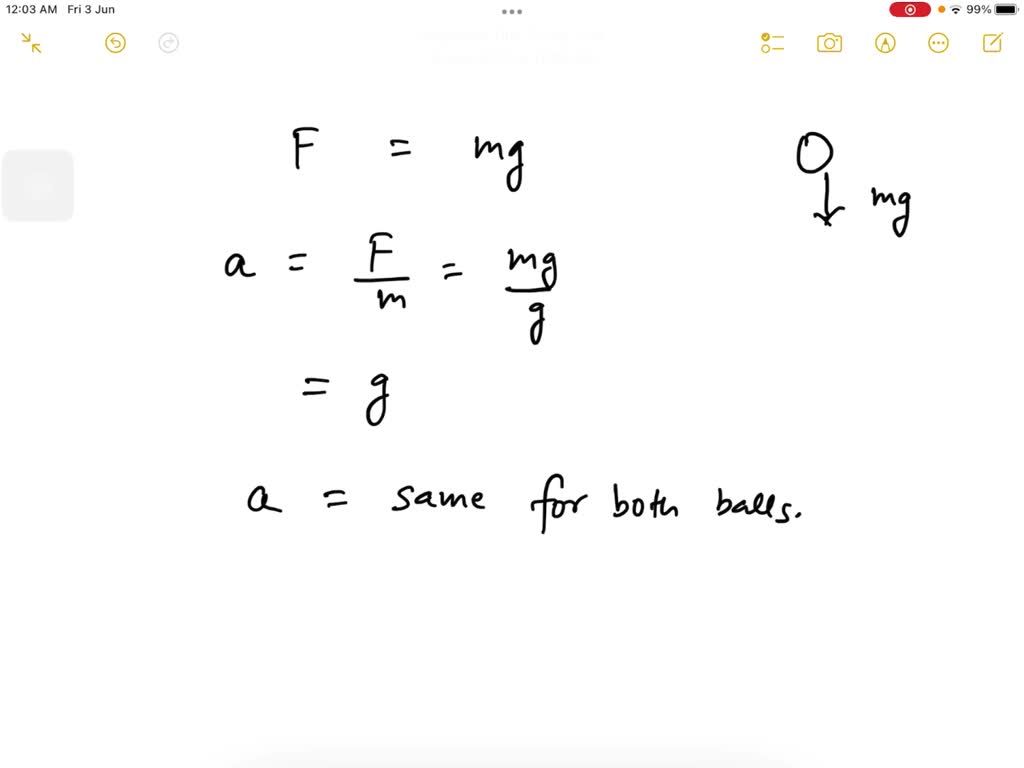 12:03 AM Fri 3 Jun 99%
F = mg
mg
a = F/m = mg/g
= g
a = same for both balls.